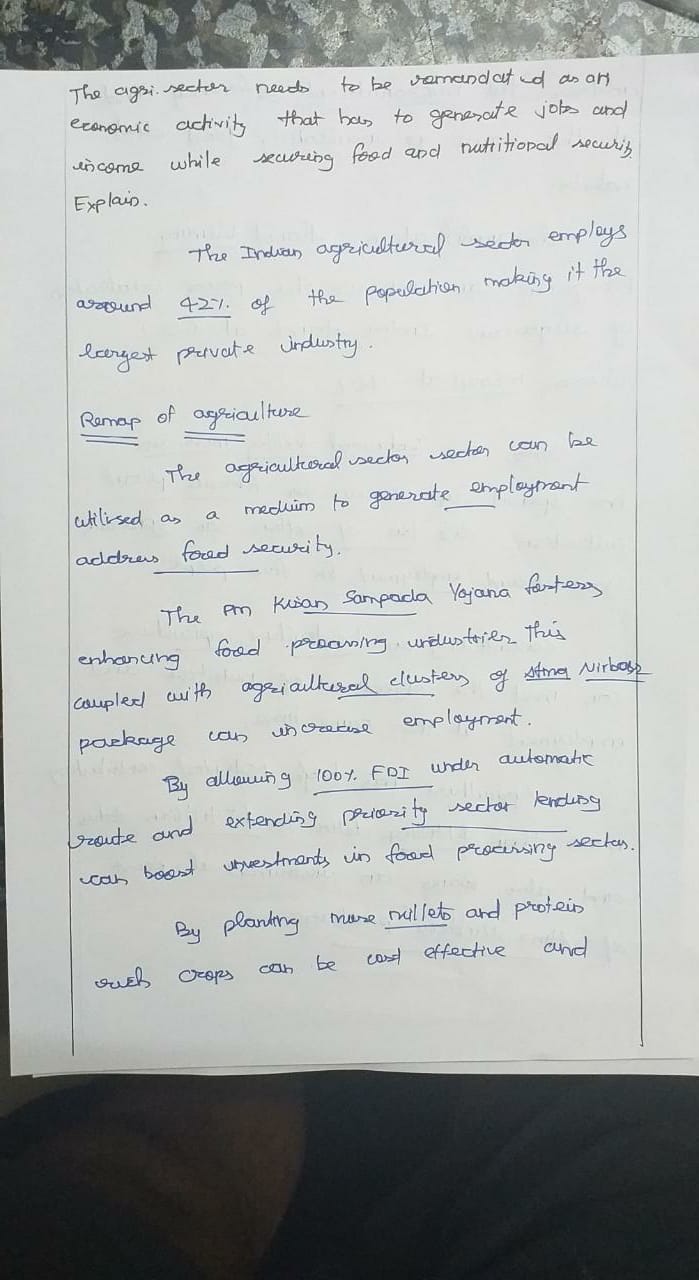 The agri. sector needs to be remandated as an
economic activity that has to generate jobs and
income while securing food and nutritional security
Explain.
The Indian agricultural sector employs
around 42% of the population making it the
largest private industry.
Remap of agriculture
The agricultural sector sector can be
utilised as a medium to generate employment
address food security.
The PM Kisan Sampada Yojana fosters
enhancing food processing industries This
coupled with agricultural clusters of Atma Nirbhar
package can increase employment.
By allowing 100% FDI under automatic
route and extending priority sector lending
can boost investments in food processing sector.
By planting more millets and protein
rich crops can be cost effective and